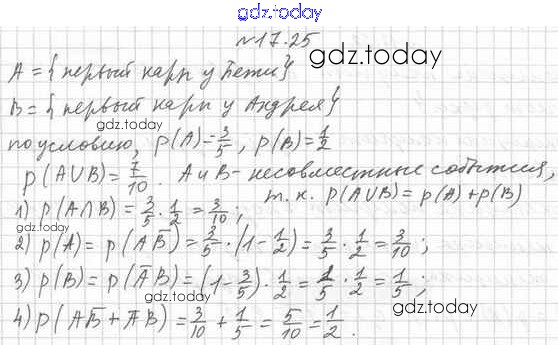 gdz.today
№17.25
gdz.today
A = { первый карп у Пети }
B = { первый карп у Андрея }
gdz.today
по условию, p(A) = 3/5, p(B) = 1/2
p(A∪B) = 7/10. A и B - несовместные события,
gdz.today
т.к. p(A∪B) = p(A) + p(B)
1) p(A∩B) = 3/5 · 1/2 = 3/10;
2) p(A) = p(AB̅) = 3/5 · (1 - 1/2) = 3/5 · 1/2 = 3/10;
gdz.today
3) p(B) = p(A̅B) = (1 - 3/5) · 1/2 = 2/5 · 1/2 = 1/5;
gdz.today
4) p(AB̅ + A̅B) = 3/10 + 1/5 = 5/10 = 1/2.
gdz.today